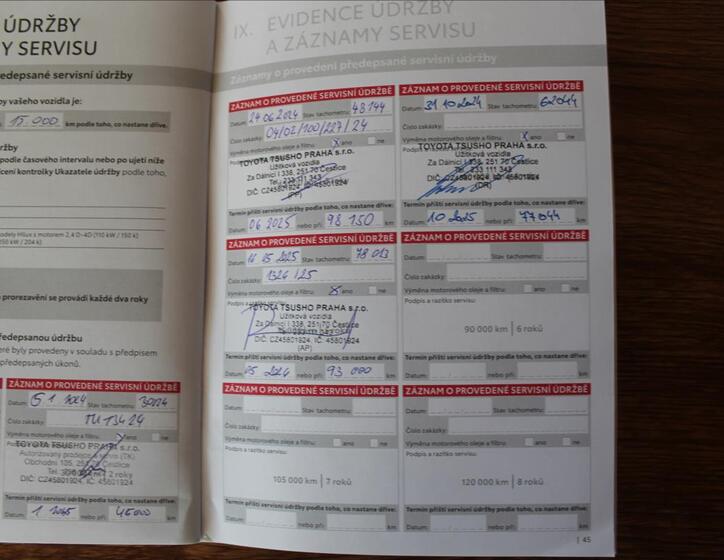 ÚDRŽBY
Y SERVISU
ředepsané servisní údržby
by vašeho vozidla je:
15 000 km podle toho, co nastane dříve.
ržby
podle časového intervalu nebo po ujetí níže
cení kontrolky Ukazatele údržby podle toho,
odely Hilux s motorem 2,4 D-4D (110 kW / 150 k)
150 kW / 204 k)
prorezavění se provádí každé dva roky
ředepsanou údržbu
eré byly provedeny v souladu s předpisem
předepsaných úkonů.
ZÁZNAM O PROVEDENÉ SERVISNÍ ÚDRŽBĚ
Datum: 5 1 2024 Stav tachometru:
Číslo zakázky:
Výměna motorového oleje a filtru: ano ne
TOYOTA TSUSHO PRAHA s.r.o.
Autorizovaný prodejce a servis (TK)
Obchodní 105, Čestlice
2 roky
DIČ: CZ45801924, IČ: 45801924
Termín příští servisní údržby podle toho, co nastane dříve:
Datum: 1 2025 nebo při: 45000 km
IX. EVIDENCE ÚDRŽBY
A ZÁZNAMY SERVISU
Záznamy o provedení předepsané servisní údržby
ZÁZNAM O PROVEDENÉ SERVISNÍ ÚDRŽBĚ
Datum: 24 06 2024 Stav tachometru: 48 144
Číslo zakázky: 04/02/100/227/24
Výměna motorového oleje a filtru: X ano ne
TOYOTA TSUSHO PRAHA s.r.o.
Užitková vozidla
Za Dálnicí I 338, 251 70 Čestlice
Tel.: 233 111 343
DIČ: CZ45801924, IČ: 45801924
(PP)
Termín příští servisní údržby podle toho, co nastane dříve:
Datum: 06 2025 nebo při: 98 150 km
ZÁZNAM O PROVEDENÉ SERVISNÍ ÚDRŽBĚ
Datum: 31 10 2024 Stav tachometru: 62044
Číslo zakázky:
Výměna motorového oleje a filtru: X ano ne
TOYOTA TSUSHO PRAHA s.r.o.
Užitková vozidla
Za Dálnicí I 338, 251 70 Čestlice
Tel.: 233 111 343
DIČ: CZ45801924, IČ: 45801924
(DR)
Termín příští servisní údržby podle toho, co nastane dříve:
Datum: 10 2025 nebo při: 77044 km
ZÁZNAM O PROVEDENÉ SERVISNÍ ÚDRŽBĚ
Datum: 05 2025 Stav tachometru: 78 013
Číslo zakázky: 1326/25
Výměna motorového oleje a filtru: X ano ne
Podpis a razítko servisu:
TOYOTA TSUSHO PRAHA s.r.o.
Užitková vozidla
Za Dálnicí I 338, 251 70 Čestlice
DIČ: CZ45801924, IČ: 45801924
(AP)
Termín příští servisní údržby podle toho, co nastane dříve:
Datum: 05 nebo při: 93 000 km
ZÁZNAM O PROVEDENÉ SERVISNÍ ÚDRŽBĚ
Datum: Stav tachometru:
Číslo zakázky:
Výměna motorového oleje a filtru: ano ne
Podpis a razítko servisu:
90 000 km | 6 roků
Termín příští servisní údržby podle toho, co nastane dříve:
Datum: nebo při: km
ZÁZNAM O PROVEDENÉ SERVISNÍ ÚDRŽBĚ
Datum: Stav tachometru:
Číslo zakázky:
Výměna motorového oleje a filtru: ano ne
Podpis a razítko servisu:
105 000 km | 7 roků
Termín příští servisní údržby podle toho, co nastane dříve:
Datum: nebo při: km
ZÁZNAM O PROVEDENÉ SERVISNÍ ÚDRŽBĚ
Datum: Stav tachometru:
Číslo zakázky:
Výměna motorového oleje a filtru: ano ne
Podpis a razítko servisu:
120 000 km | 8 roků
Termín příští servisní údržby podle toho, co nastane dříve:
Datum: nebo při: km
| 45